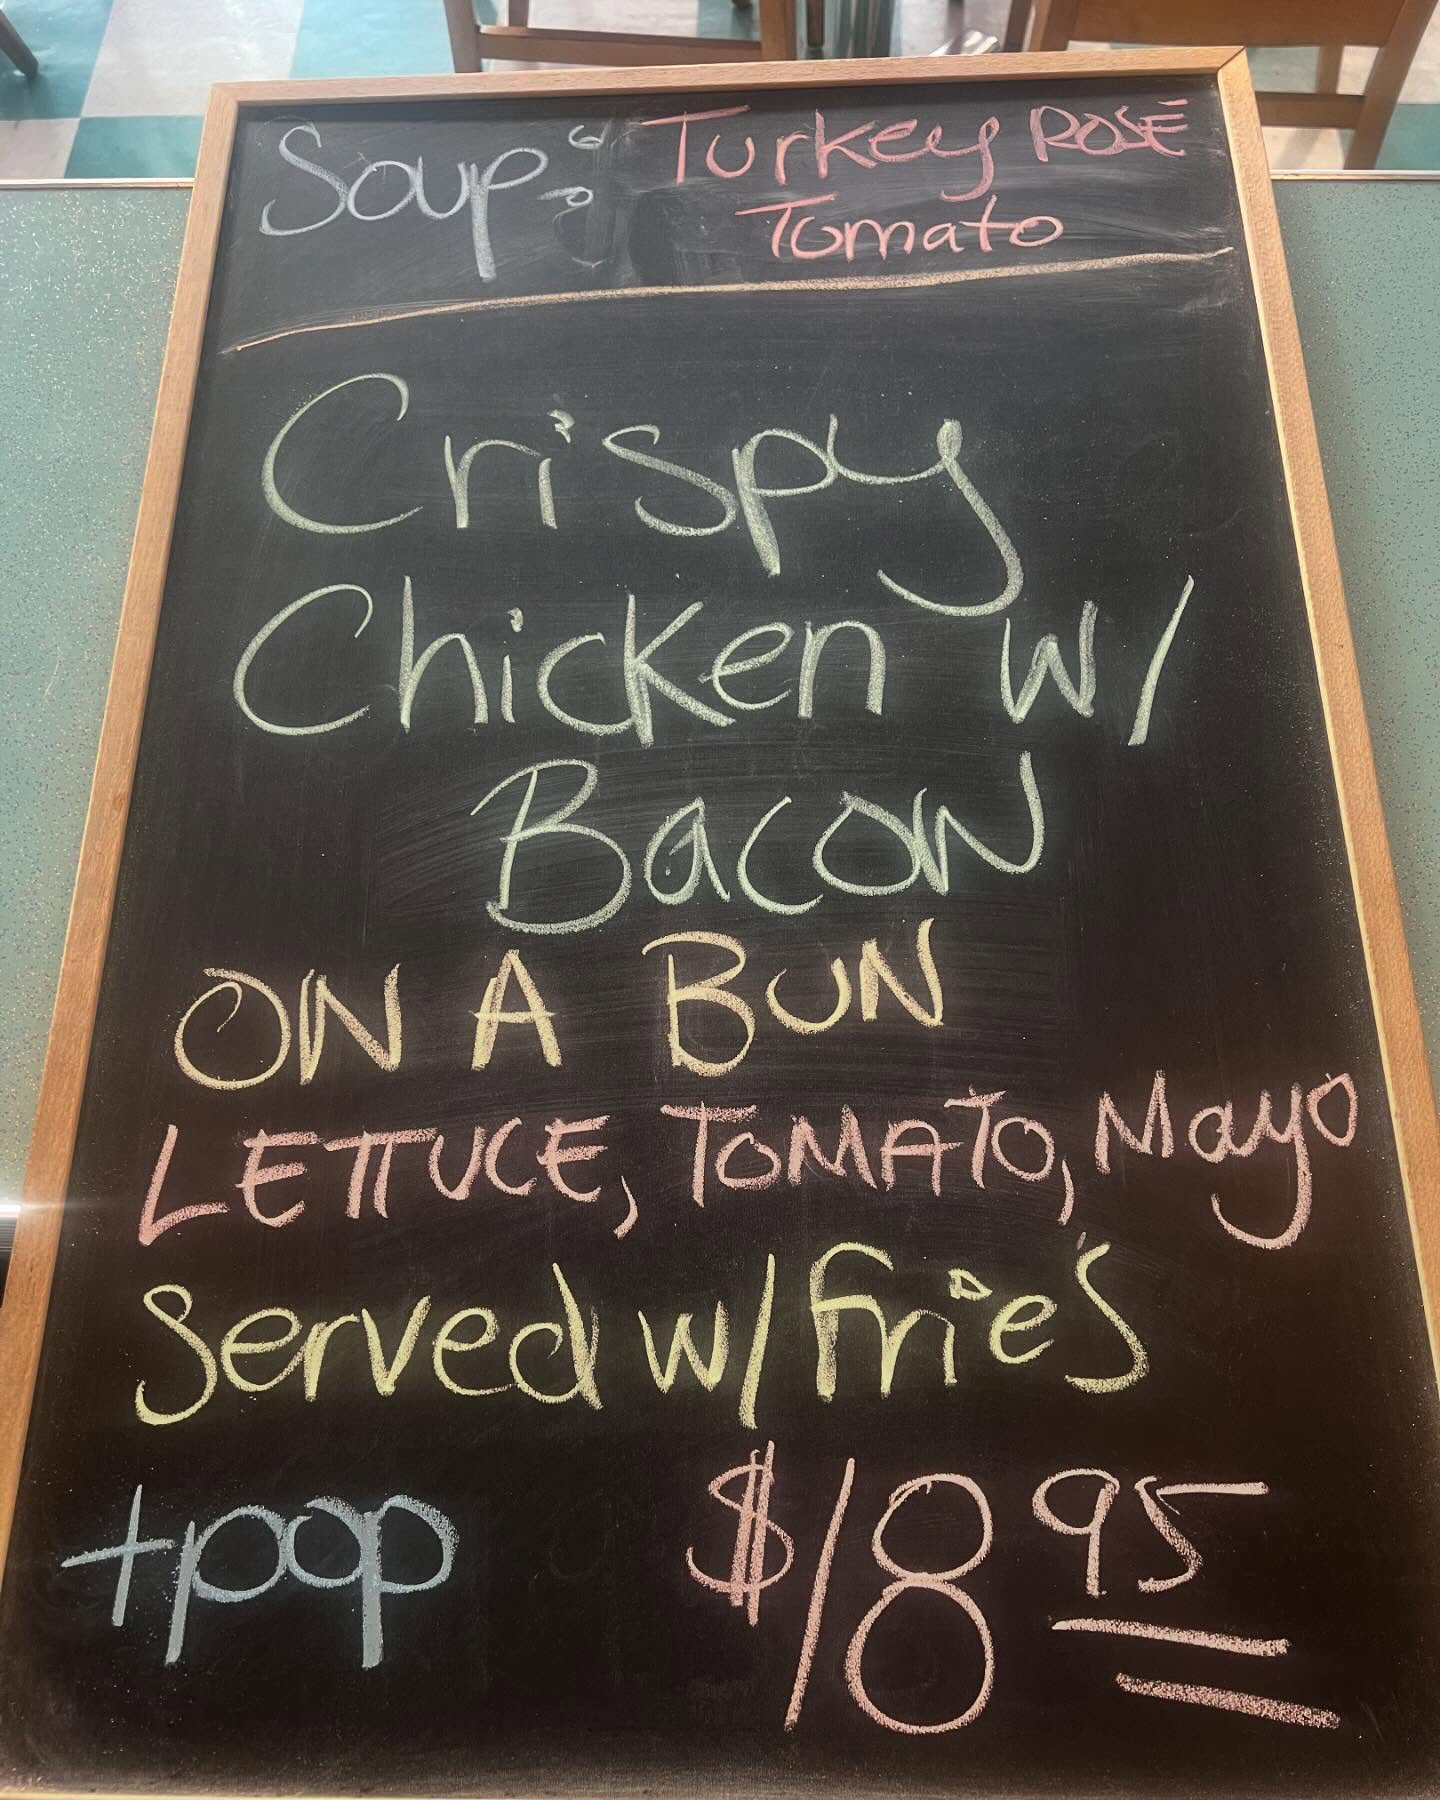 Soup: Turkey ROSÉ
Tomato
Crispy
Chicken w/
Bacon
ON A BUN
LETTUCE, TOMATO, Mayo
Served w/ fries
+pop $18 95